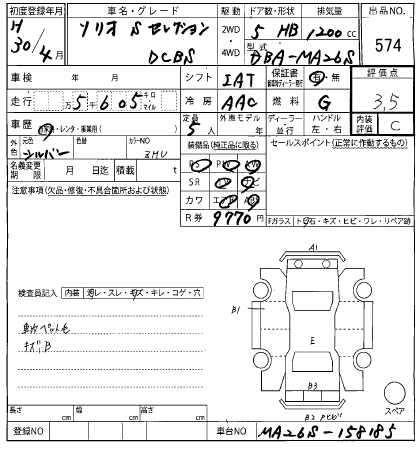 初度登録年月 車名・グレード 駆動 ドア数・形状 排気量 出品No.
H 30年 4月 ソリオ S セレクション DCBS 2WD・4WD 5 HB 1200cc 574
型式 DBA-MA26S
車検 年 月 シフト IAT 保証書 有・無 評価点
走行 万 5千605 キロ マイル 冷房 AAC 燃料 G 3,5
車歴 自家用・レンタ・事業用( ) 定員 5人 外車モデル 年 ディーラー 並行 ハンドル 左・右 内装評価 C
外色 元色 シルバー 色替 カラーNO ZMU 装備品(純正品に限る) セールスポイント(正常に作動するもの)
名義変更期限 月 日迄 積載 t PS PW AW
注意事項(欠品・修復・不具合箇所および状態) SR ナビ
カワ エアB ABS
R券 9770円 Fガラス
A1
検査員記入 内装 スレ・キズ・キレ・コゲ・穴
B1
E
車内ペット毛
キズB
B3
B2
スペア
長さ cm 幅 cm 高さ cm
登録NO 車台NO MA26S-158185